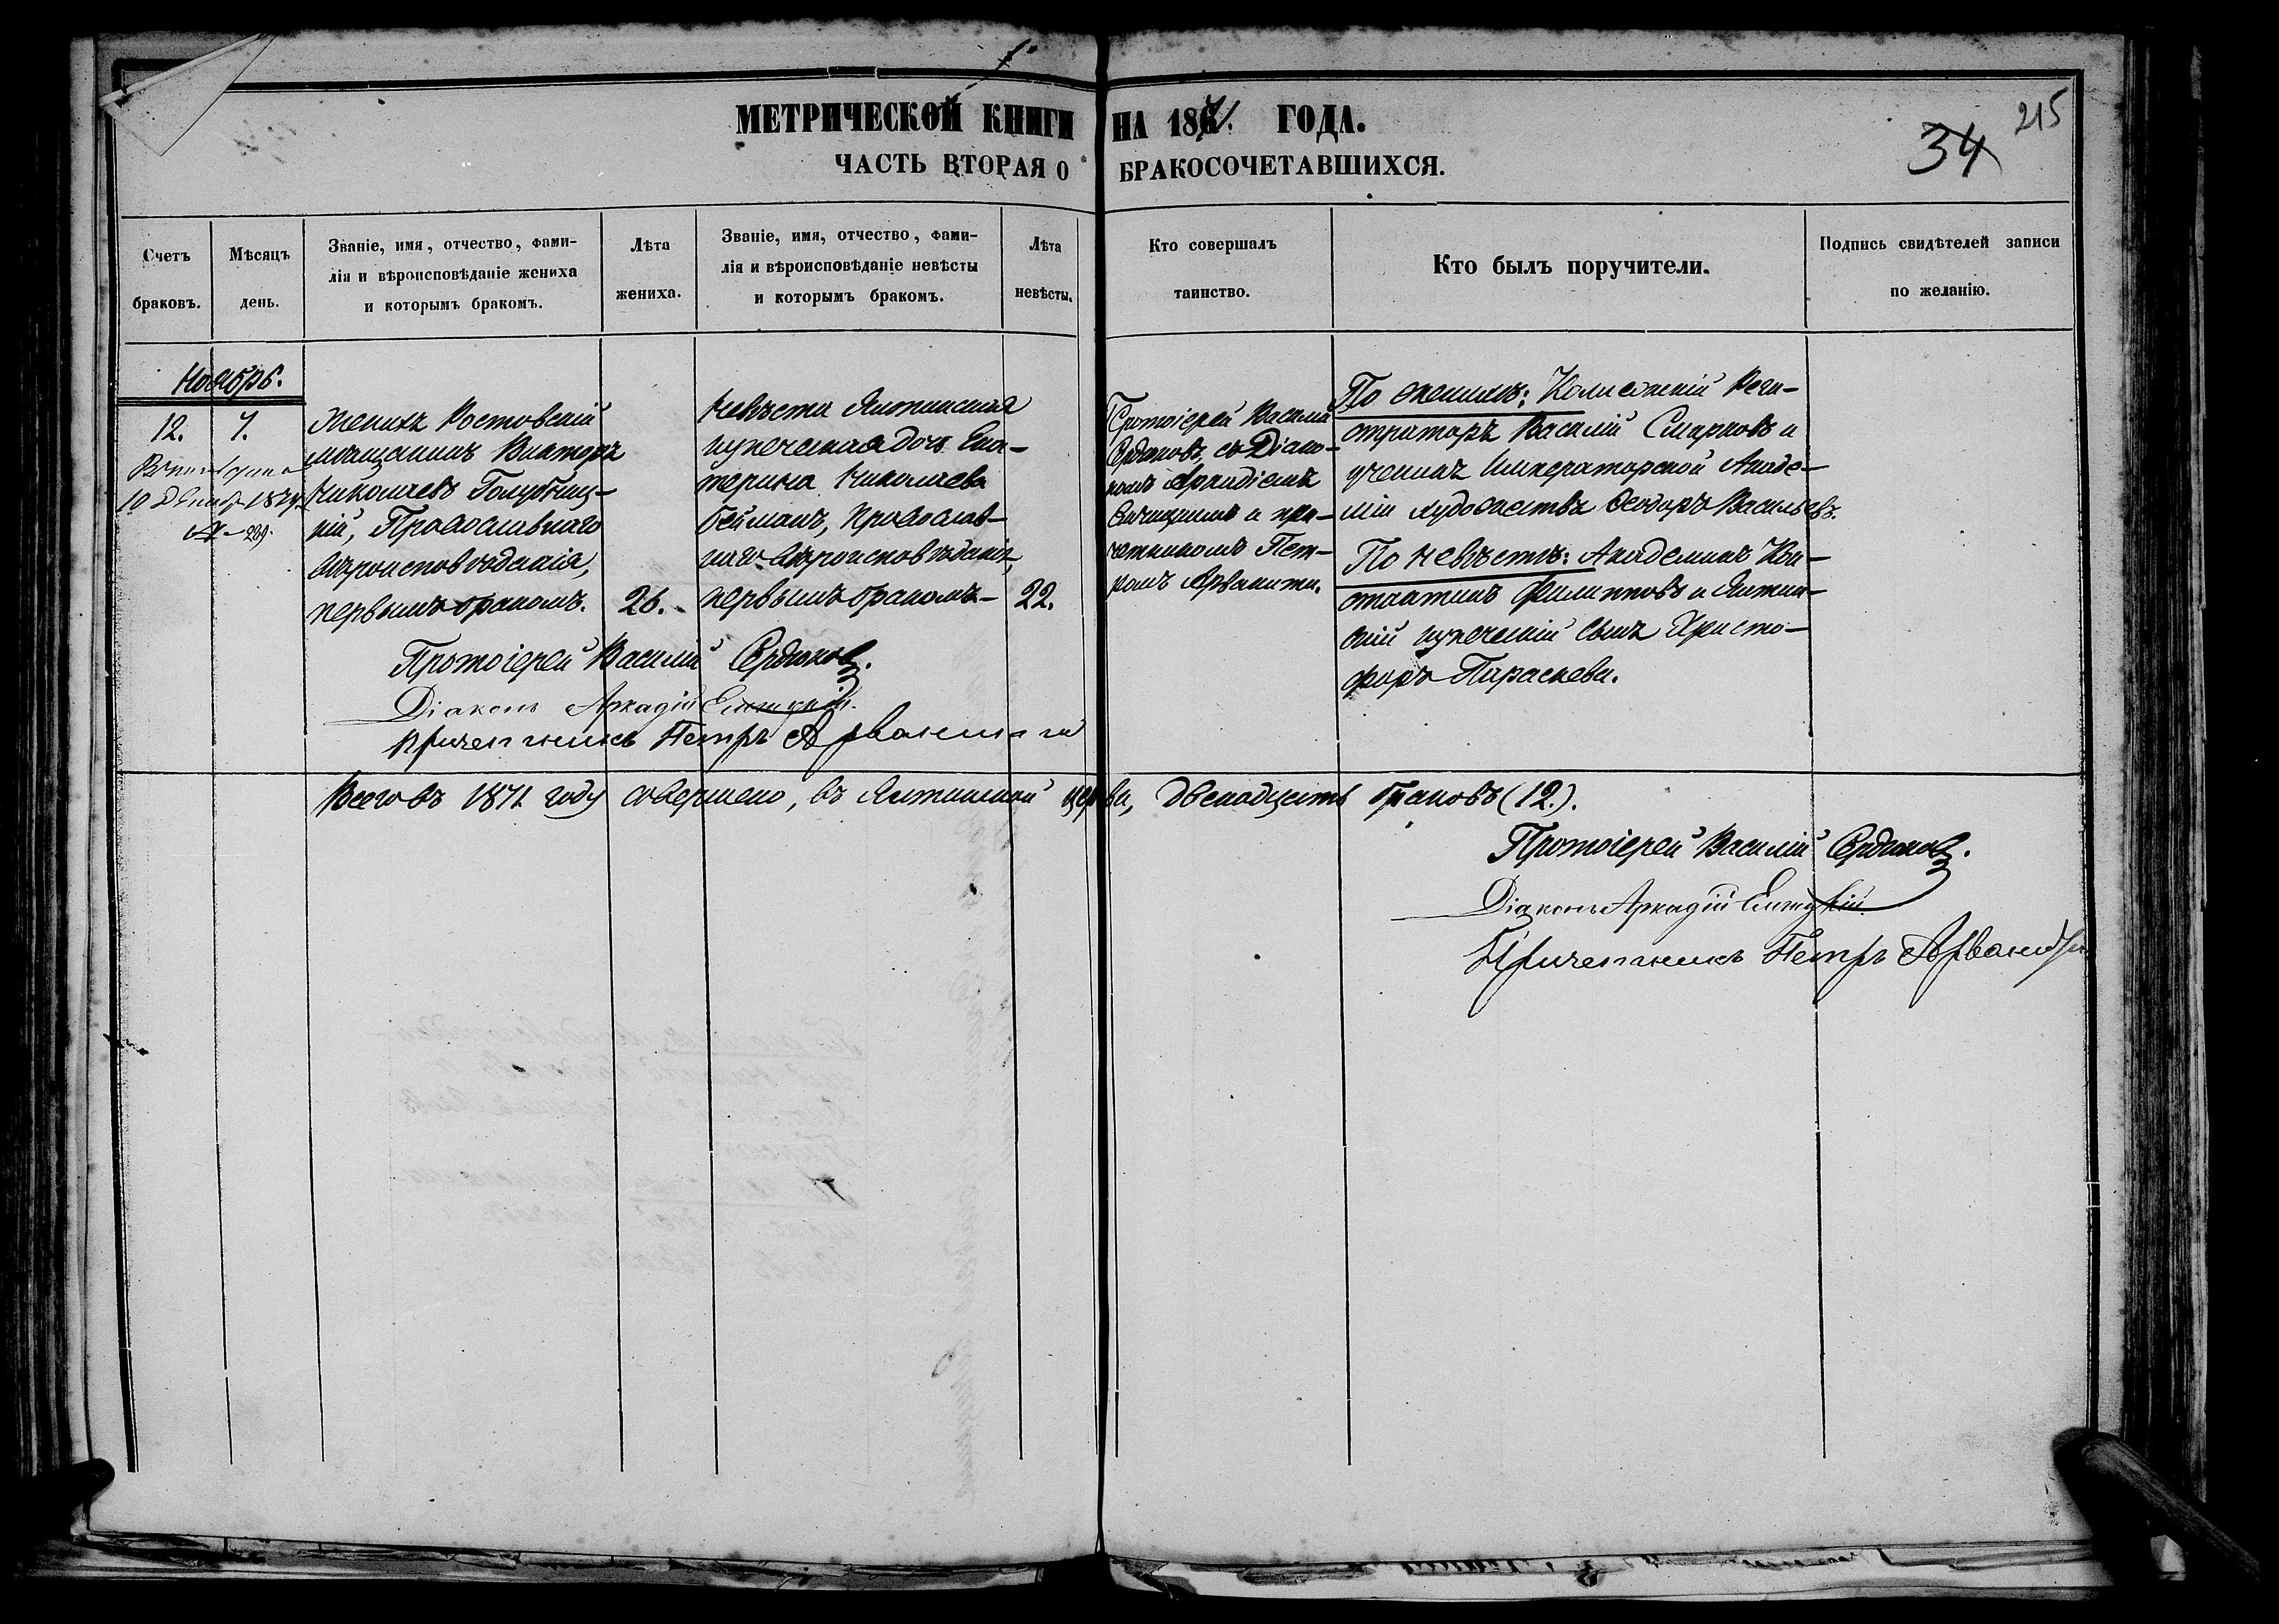 МЕТРИЧЕСКОЙ КНИГИ НА 1871. ГОДА.
ЧАСТЬ ВТОРАЯ О БРАКОСОЧЕТАВШИХСЯ.
34 215
Счетъ браковъ.
Мѣсяцъ день.
Званіе, имя, отчество, фами-
лія и вѣроисповѣданіе жениха
и которымъ бракомъ.
Лѣта
жениха.
Званіе, имя, отчество, фами-
лія и вѣроисповѣданіе невѣсты
и которымъ бракомъ.
Лѣта
невѣсты.
Кто совершалъ
таинство.
Кто былъ поручители.
Подпись свидѣтелей записи
по желанію.
Ноябрь.
12. 7.
10 Декабр. 1874.
№ 299.
Женихъ Ростовскій
мѣщанинъ Викторъ
Николаевъ Голубниц-
кій, Православнаго
вѣроисповѣданія,
первымъ бракомъ.
26.
Невѣста Ялтинская
купеческая дочь Ека-
терина Николаева
Гейманъ, Православ-
наго вѣроисповѣданія,
первымъ бракомъ
22.
Протоіерей Василій
Сердюковъ, съ Діако-
номъ Аркадіемъ
и при-
четникомъ Пет-
ромъ Арванити.
По женихѣ: Колежскій Реги-
страторъ Василій Смирновъ и
ученикъ Императорской Акаде-
міи художествъ Ѳеодоръ Васильевъ.
По невѣстѣ: Академикъ Кон-
стантинъ Филипповъ и Ялтин-
скій купеческій сынъ Христо-
форъ Параскева.
Протоіерей Василій Сердюковъ.
Діаконъ Аркадій
Причетникъ Петръ Арванити
Всего въ 1871 году совершено, въ Ялтинской церкви, двенадцать браковъ (12.).
Протоіерей Василій Сердюковъ.
Діаконъ Аркадій
Причетникъ Петръ Арванити